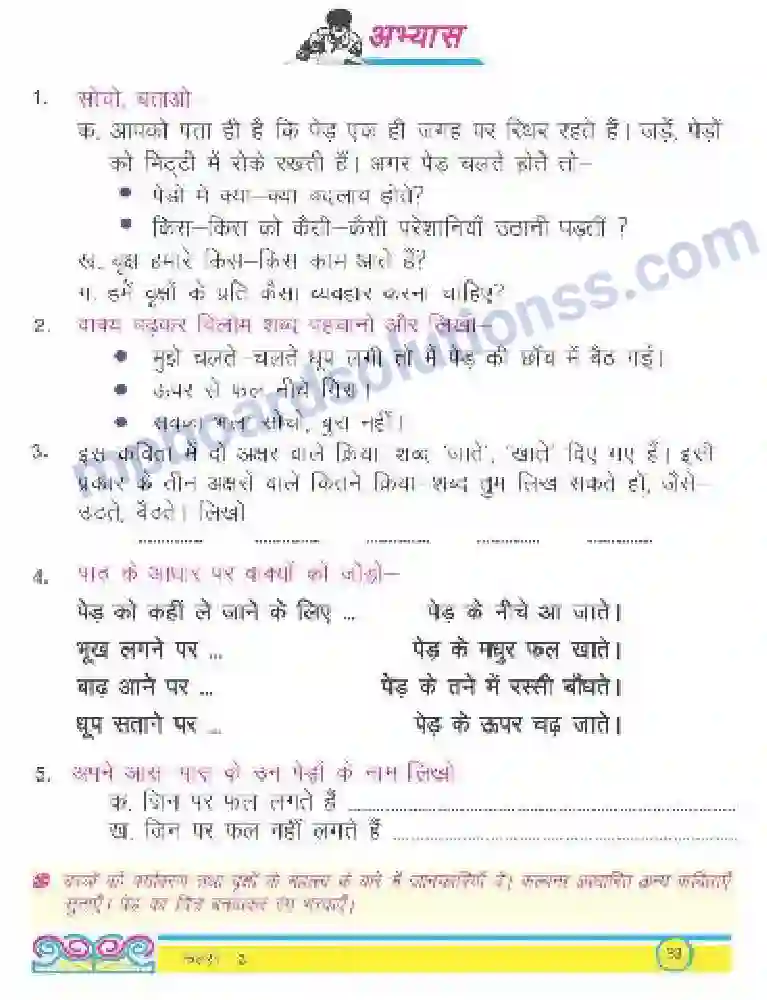 अभ्यास
1. सोचो, बताओ
क. आपको पता ही है कि पेड़ एक ही जगह पर स्थिर रहते हैं। जड़ें, पेड़ों
को मिट्टी में रोके रखती हैं। अगर पेड़ चलते होते तो–
• पेड़ों में क्या–क्या बदलाव होते?
• किस–किस को कैसी–कैसी परेशानियाँ उठानी पड़तीं ?
ख. वृक्ष हमारे किस–किस काम आते हैं?
ग. हमें वृक्षों के प्रति कैसा व्यवहार करना चाहिए?
2. वाक्य पढ़कर विलोम शब्द पहचानो और लिखो–
• मुझे चलते–चलते धूप लगी तो मैं पेड़ की छाँव में बैठ गई।
• ऊपर से फल नीचे गिरा।
• सबका भला सोचो, बुरा नहीं।
3. इस कविता में दो अक्षर वाले क्रिया शब्द 'जाते', 'खाते' दिए गए हैं। इसी
प्रकार के तीन अक्षरों वाले कितने क्रिया–शब्द तुम लिख सकते हो, जैसे–
उठते, बैठते। लिखो
4. पाठ के आधार पर वाक्यों को जोड़ो–
पेड़ को कहीं ले जाने के लिए ... पेड़ के नीचे आ जाते।
भूख लगने पर ... पेड़ के मधुर फल खाते।
बाढ़ आने पर ... पेड़ के तने में रस्सी बाँधते।
धूप सताने पर ... पेड़ के ऊपर चढ़ जाते।
5. अपने आस पास के उन पेड़ों के नाम लिखो
क. जिन पर फल लगते हैं
ख. जिन पर फल नहीं लगते हैं
बच्चों को पर्यावरण तथा वृक्षों के महत्त्व के बारे में जानकारियाँ दें। कल्पना आधारित अन्य कविताएँ
सुनाएँ। पेड़ का चित्र बनवाकर रंग भरवाएँ।
mpboardsolutionss.com